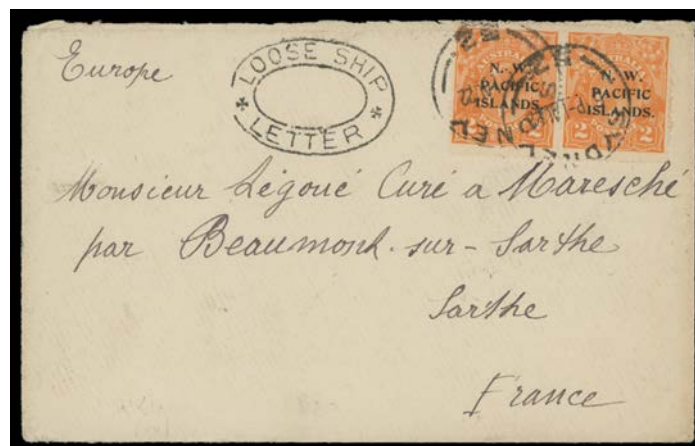 Europe
LOOSE SHIP
LETTER
AUSTRALIA
N. W.
PACIFIC
ISLANDS.
2 2
N. W.
PACIFIC
ISLANDS.
2 2
SYDNEY
Monsieur Légoué Curé a Maresché
par Beaumont-sur-Sarthe
Sarthe
France